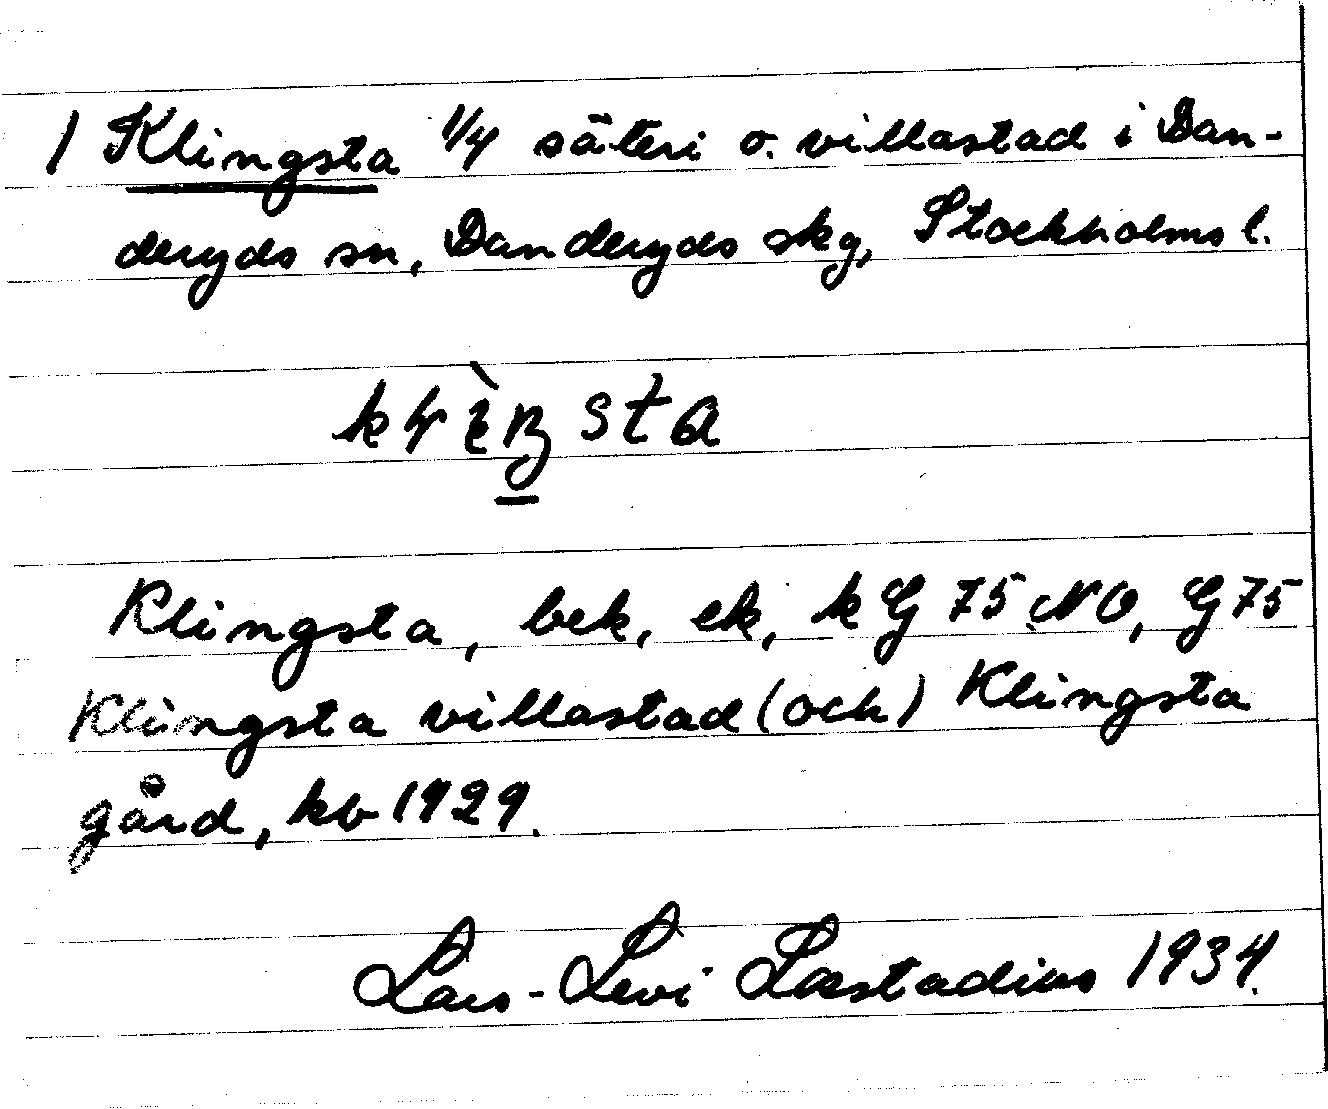 1 Klingsta 1/4 säteri o. villastad i Dan-
deryds sn, Danderyds skg, Stockholms l.
Klingsta, bek, ek, k G 75 NO, G 75
Klingsta villastad (och) Klingsta
gård, kb 1929.
Lars-Levi Læstadius 1934.